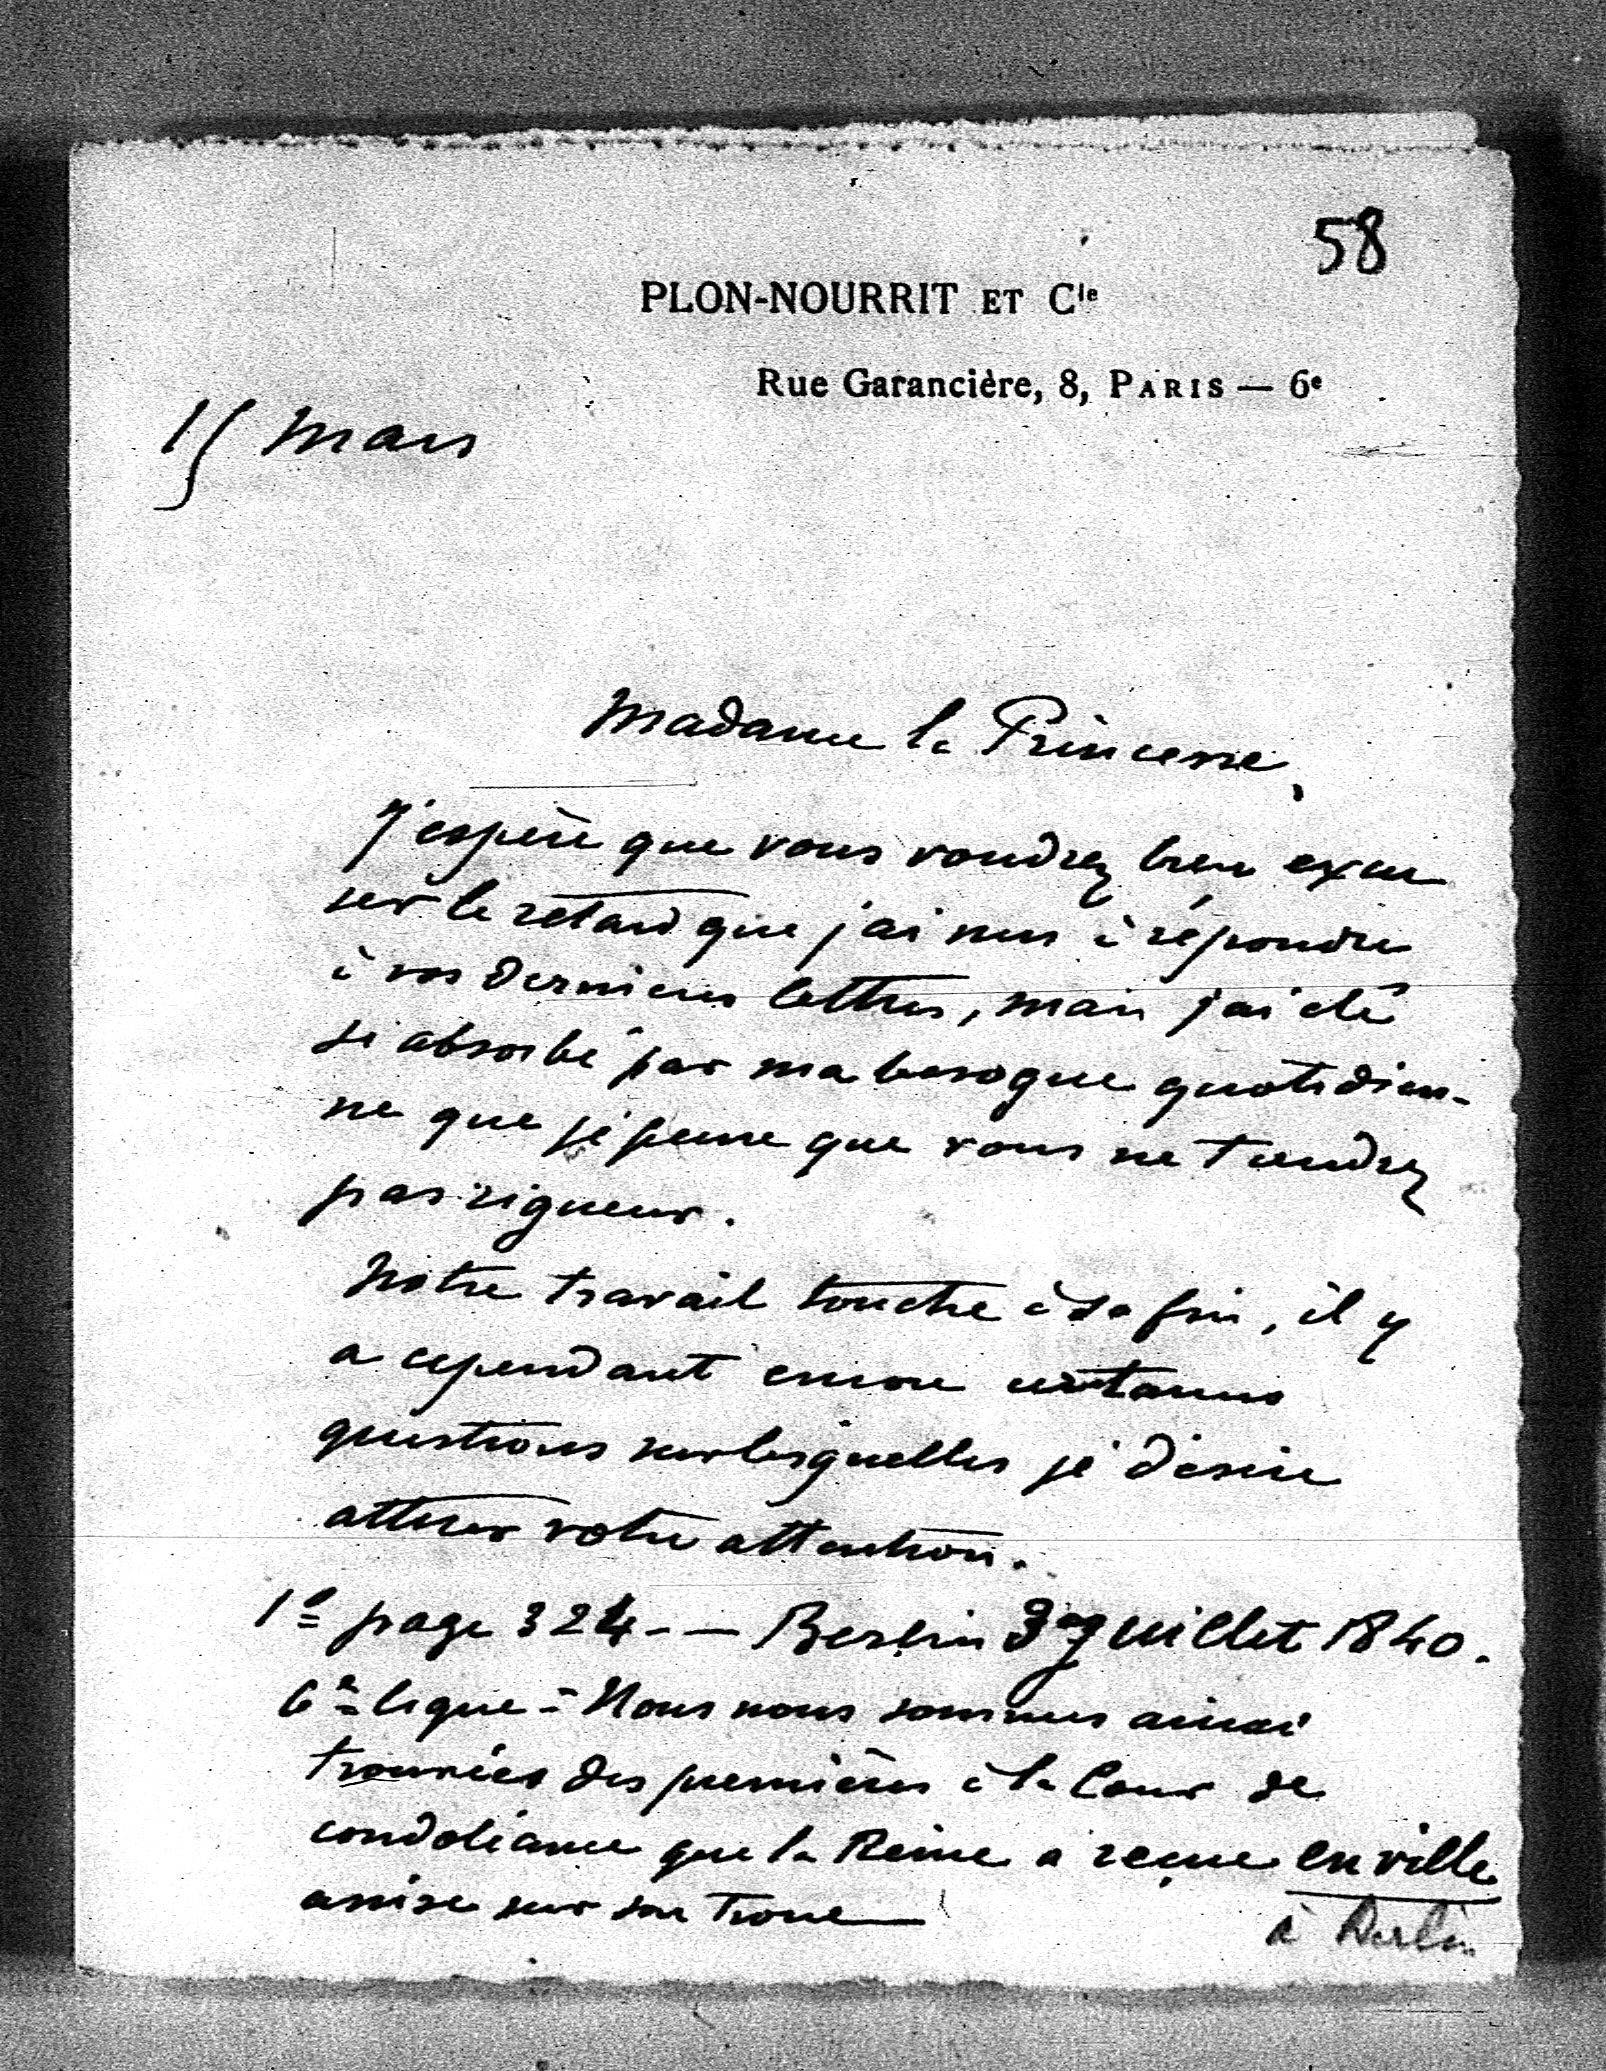 58
PLON-NOURRIT ET Cie
Rue Garancière, 8, PARIS — 6e
15 Mars
Madame la Princesse,
J'espère que vous voudrez bien excu
ser le retard que j'ai mis à répondre
à vos dernières lettres, mais j'ai été
si absorbé par ma besogne quotidien-
ne que je pense que vous ne tiendrez
pas rigueur.
Notre travail touche à sa fin, il y
a cependant encore certaines
questions sur lesquelles je désire
attirer votre attention.
1º page 324 - — Berlin 3 Juillet 1840.
6e ligne - Nous nous sommes ainsi
trouvées des premières à la Cour de
condoléance que la Reine a reçue en ville
assise sur son trone
à Berlin